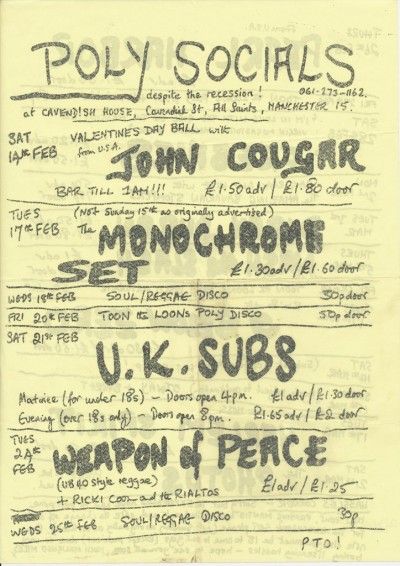 POLY SOCIALS
despite the recession! 061-273-1162.
at CAVENDISH HOUSE, Cavendish St, All Saints, MANCHESTER 15.
SAT VALENTINES DAY BALL with
14TH FEB from U.S.A. JOHN COUGAR
BAR TILL 1AM!!! £1.50 adv / £1.80 door
TUES (Not Sunday 15th as originally advertised)
17TH FEB The MONOCHROME
SET £1.30 adv / £1.60 door
WEDS 18TH FEB SOUL/REGGAE DISCO 30p door
FRI 20TH FEB TOON the LOONS POLY DISCO 50p door
SAT 21ST FEB
U.K. SUBS
Matinee (for under 18s) - Doors open 4pm. £1 adv / £1.30 door
Evening (over 18s only) - Doors open 8pm. £1.65 adv / £2 door
TUES
24TH FEB WEAPON of PEACE
(UB40 style reggae) £1 adv / £1.25
+ RICKI COOL and the RIALTOS
WEDS 25TH FEB SOUL/REGGAE DISCO 30p
PTO!